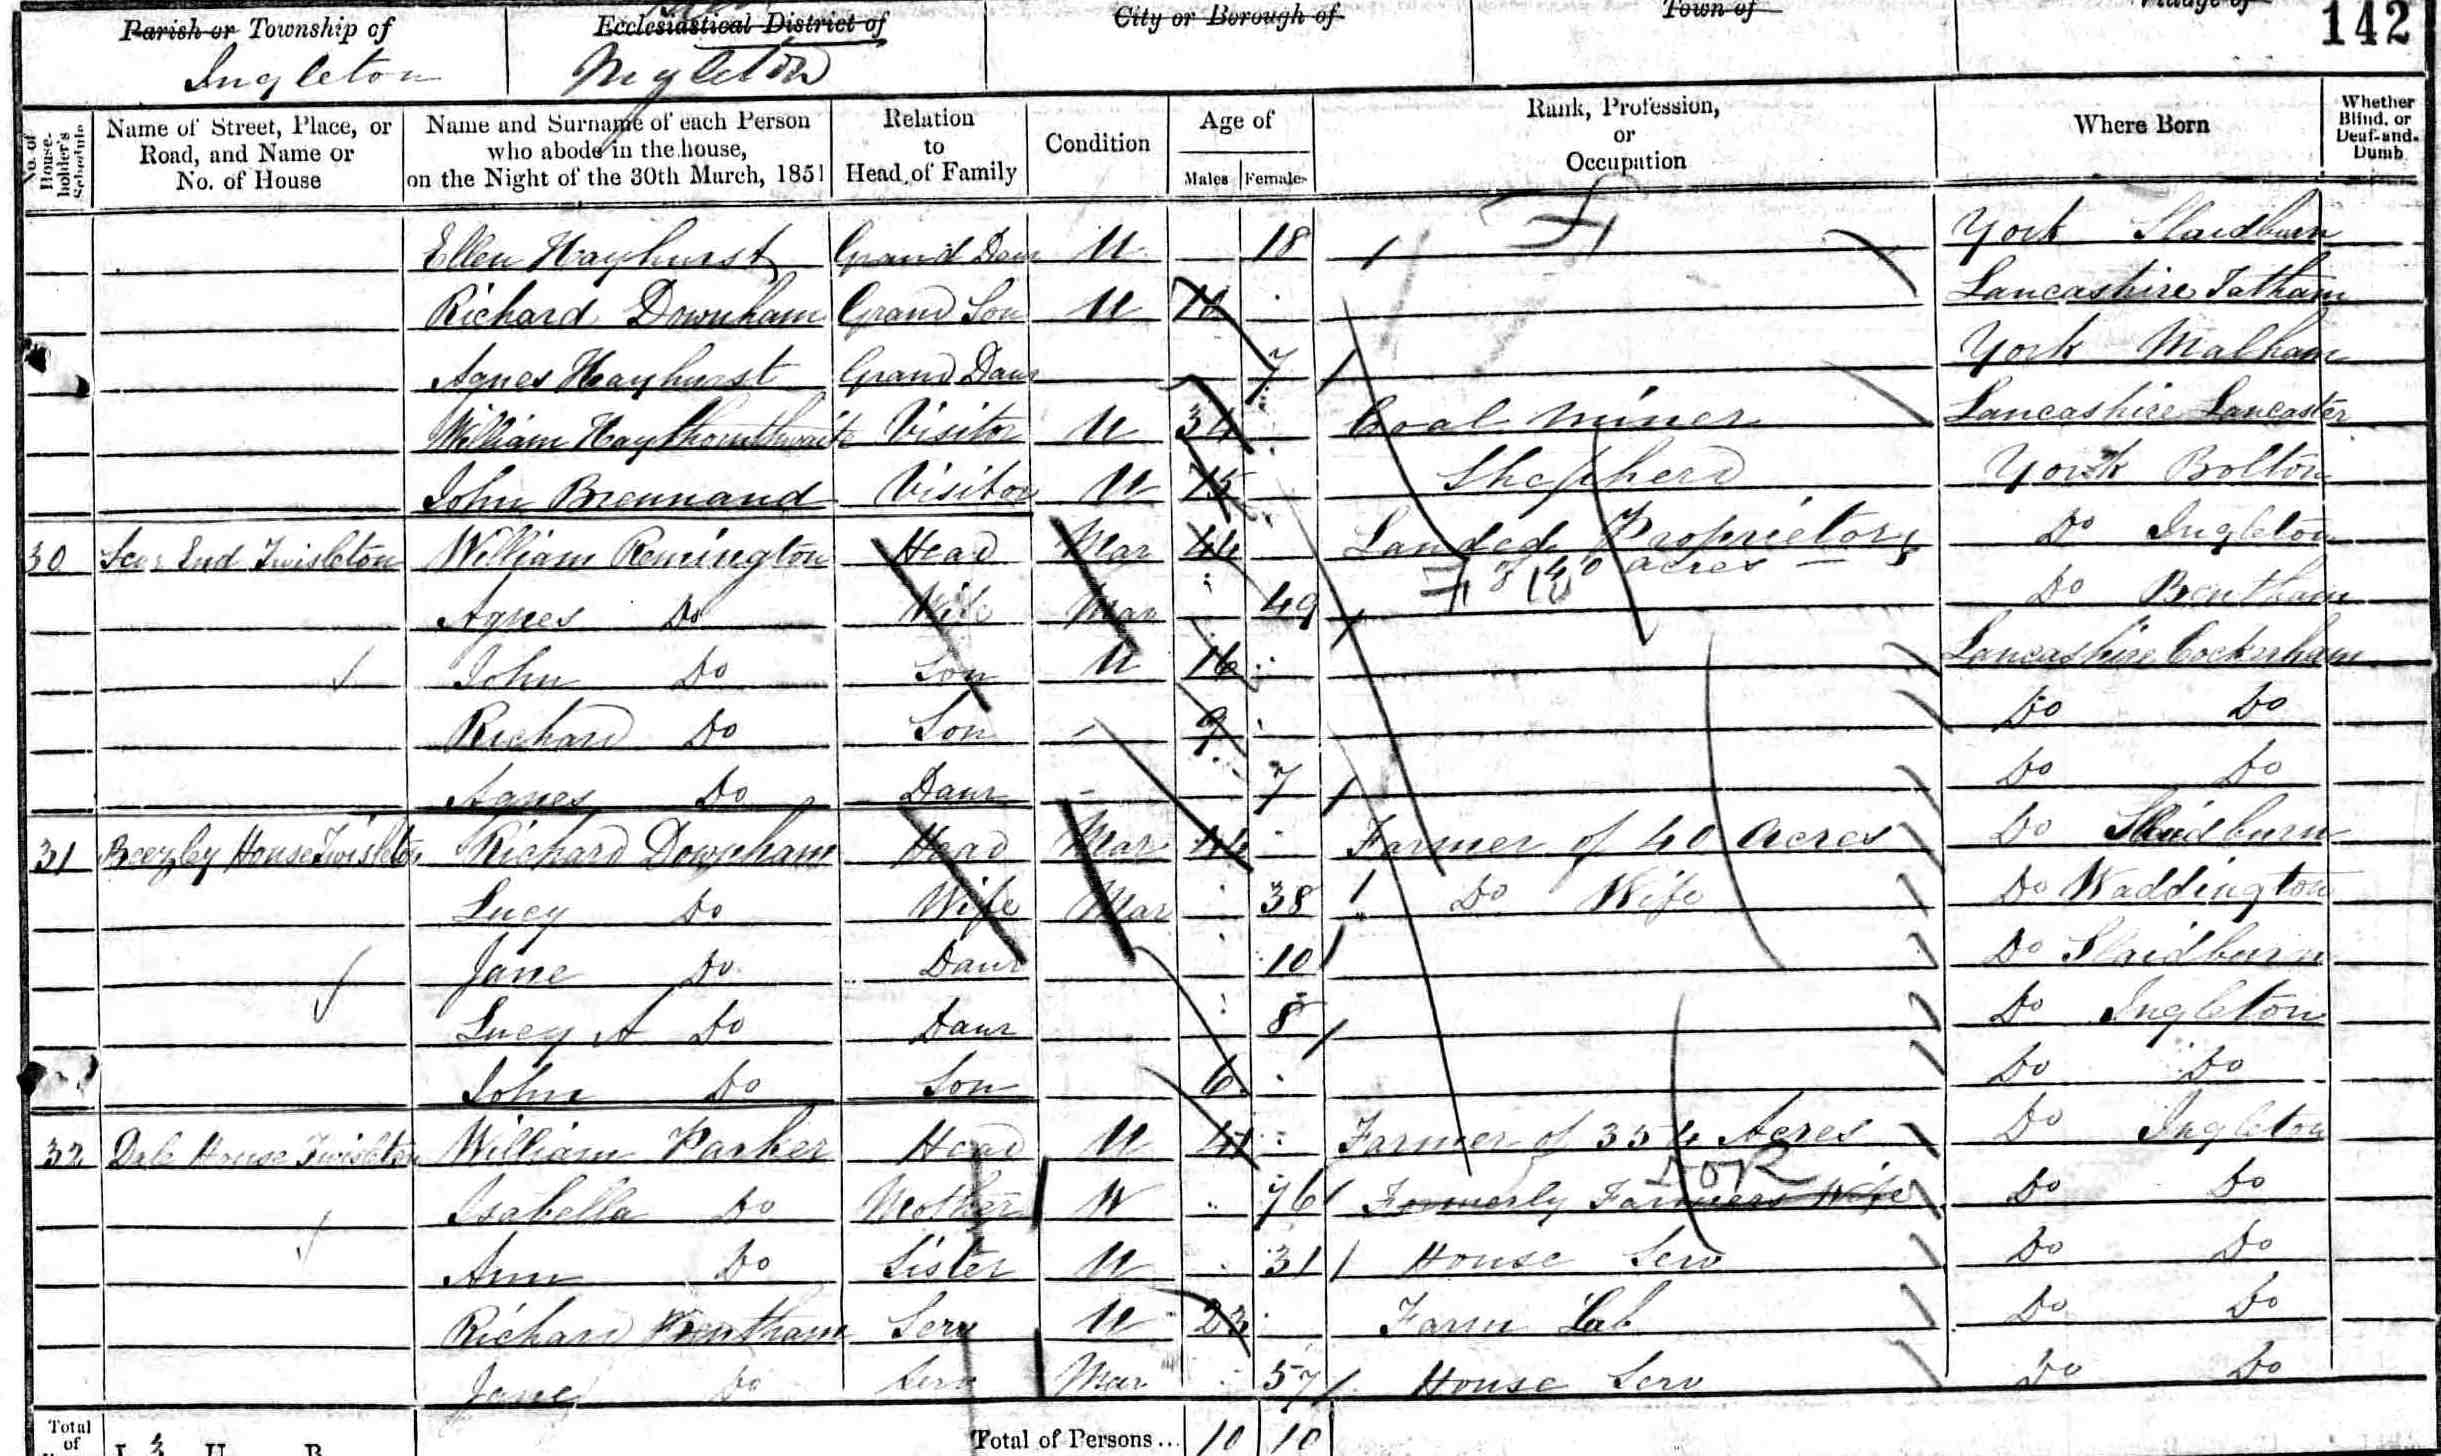 Parish or Township of Ecclesiastical District of City or Borough of Town of Village of 142
Ingleton Ingleton
No. of House-holder's Schedule Name of Street, Place, or Road, and Name or No. of House Name and Surname of each Person who abode in the house, on the Night of the 30th March, 1851 Relation to Head of Family Condition Age of Males Females Rank, Profession, or Occupation Where Born Whether Blind, or Deaf-and-Dumb
Ellen Hayhurst Grand Daur U 18 York Slaidburn
Richard Downham Grand Son U Lancashire Tatham
Agnes Hayhurst Grand Daur 7 York Malham
William Haythornthwaite Visitor U 34 Coal Miner Lancashire Lancaster
John Brennand Visitor U 75 Shepherd York Bolton
30 Scar End Twisleton William Remington Head Mar 44 Landed Proprietor Do Ingleton
of 40 acres
Agnes Do Wife Mar 49 Do Bentham
John Do Son U 16 Lancashire Cockerham
Richard Do Son - 9 Do Do
Agnes Do Daur - 7 Do Do
31 Beezley House Twisleton Richard Downham Head Mar 44 Farmer of 40 Acres Do Slaidburn
Lucy Do Wife Mar 38 Do Wife Do Waddington
Jane Do Daur 10 Do Slaidburn
Lucy A Do Daur 8 Do Ingleton
John Do Son 6 Do Do
32 Dale House Twisleton William Parker Head U 41 Farmer of 354 Acres Do Ingleton
Isabella Do Mother W 76 Formerly Farmers Wife Do Do
Ann Do Sister U 31 House Serv Do Do
Richard Bentham Serv U 23 Farm Lab Do Do
Jane Do Serv Mar 57 House Serv Do Do
Total of Total of Persons... 10 10